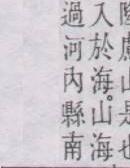 山是也
入於海。山海
過河內縣南